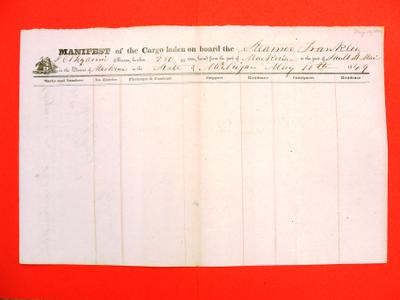 MANIFEST of the Cargo laden on board the Steamer Franklin
Master, burden 280 tons, bound from the port of Mackinac to the port of Sault St. Mari
in the District of Mackinac in the State of Michigan May 11th 1849
Marks and Numbers. No. Entries. Packages & Contents. Shippers. Residence. Consignees. Residence.